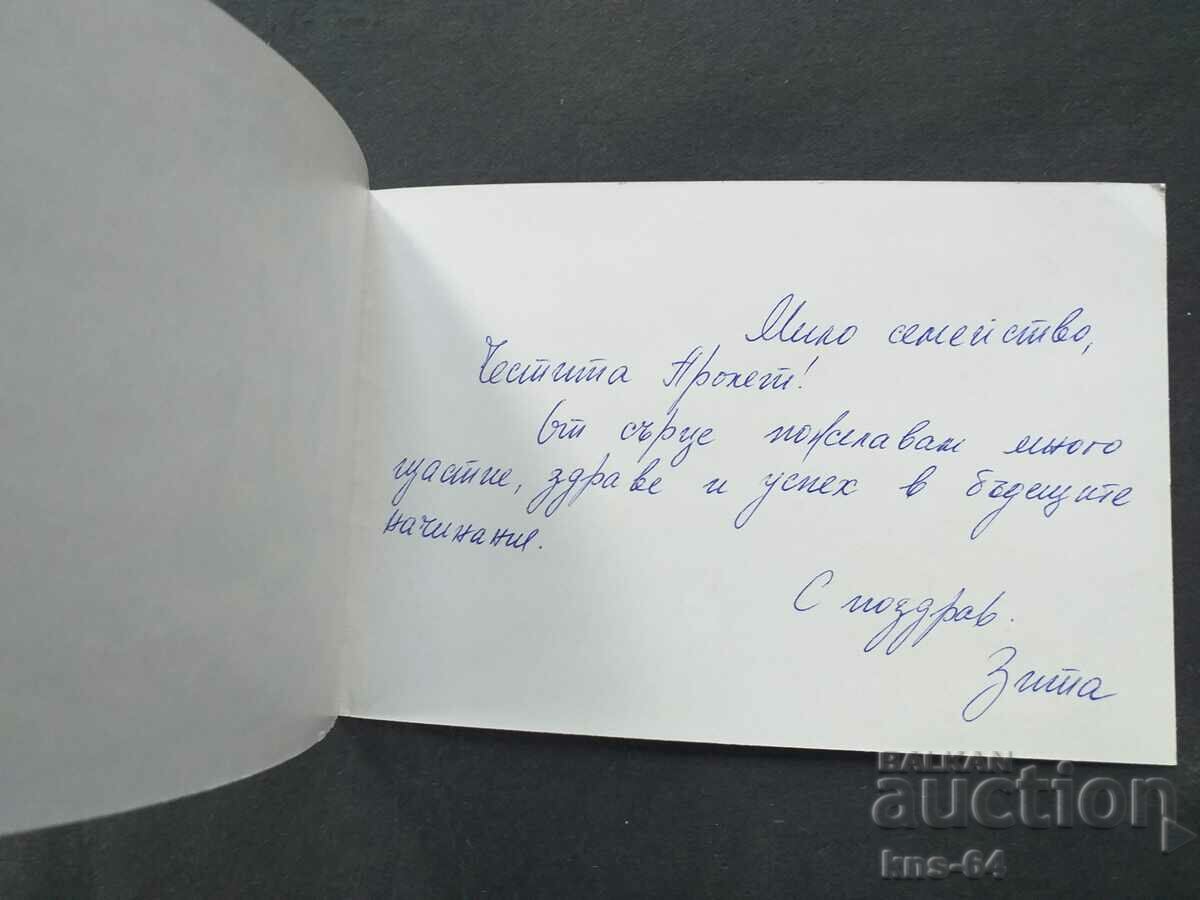 Мило семейство,
Честита Пролет!
От сърце пожелавам много
щастие, здраве и успех в бъдещите
начинания.
С поздрав.
Зита
BALKAN
auction
kns-64